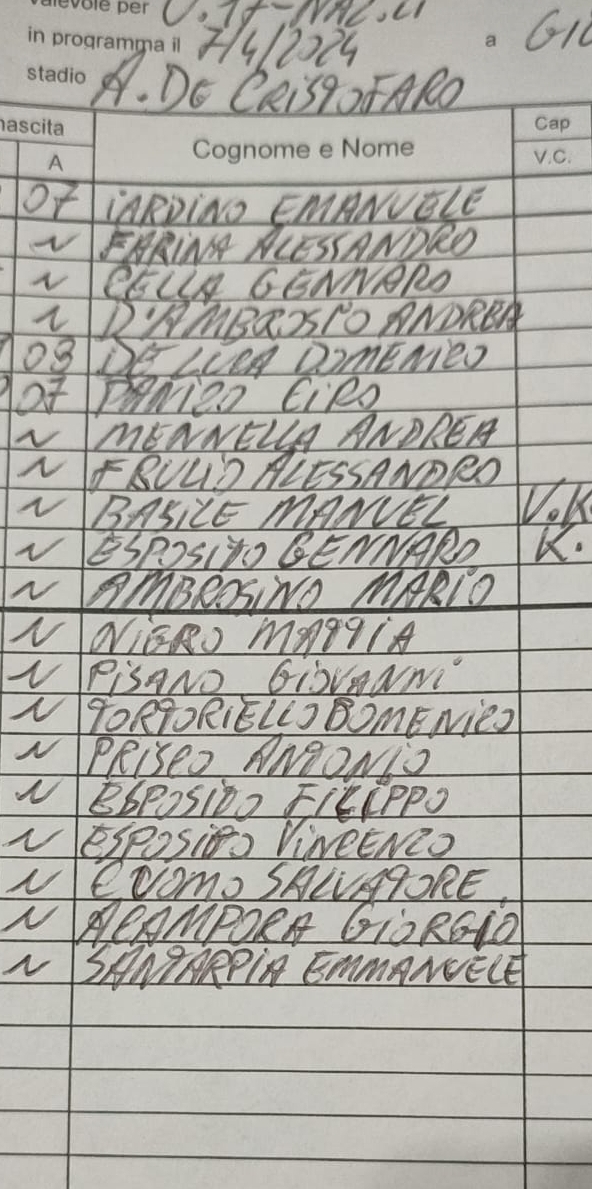 valevole per U.17-NAZ.LI
in programma il 7/4/2024 a GIU
stadio A. DE CRISTOFARO
nascita Cognome e Nome Cap
A V.C.
07 IARDINO EMANUELE
~ FARINA ALESSANDRO
~ CELLA GENNARO
~ D'AMBROSIO ANDREA
08 DE LUCA DOMENICO
07 PANICO CIRO
~ MENNELLA ANDREA
~ FRULIO ALESSANDRO
~ BASILE MANUEL V.K.
~ ESPOSITO GENNARO K.
~ AMBROSINO MARIO
~ NIGRO MATTIA
~ PISANO GIOVANNI
~ TORTORIELLO DOMENICO
~ PRISCO ANTONIO
~ ESPOSITO FILIPPO
~ ESPOSITO VINCENZO
~ CUOMO SALVATORE
~ ACAMPORA GIORGIO
~ SANTARPIA EMMANUELE